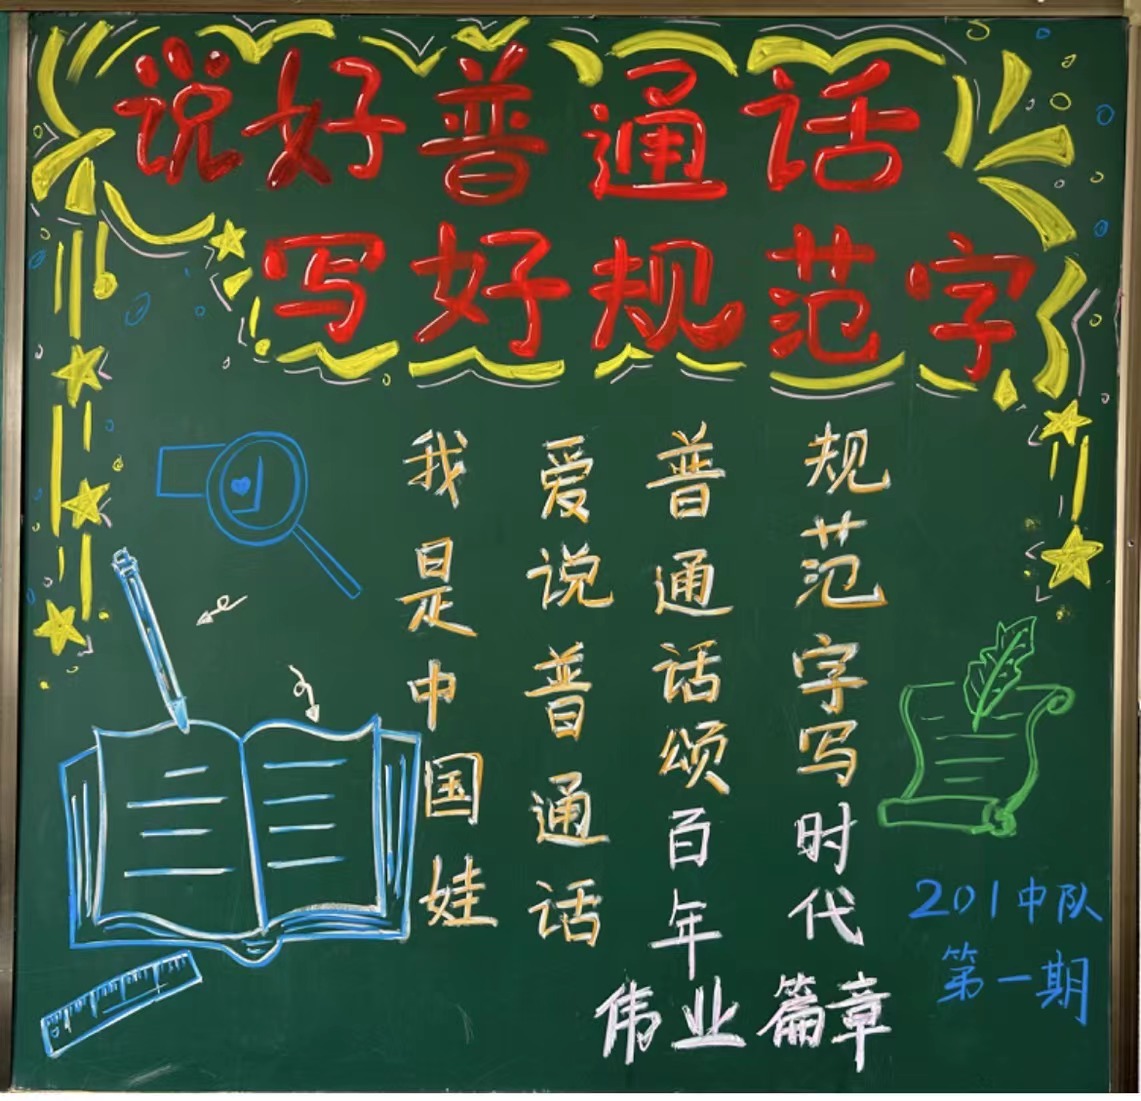 说好普通话
写好规范字
我是中国娃
爱说普通话
普通话颂百年伟业
规范字写时代篇章
201中队
第一期